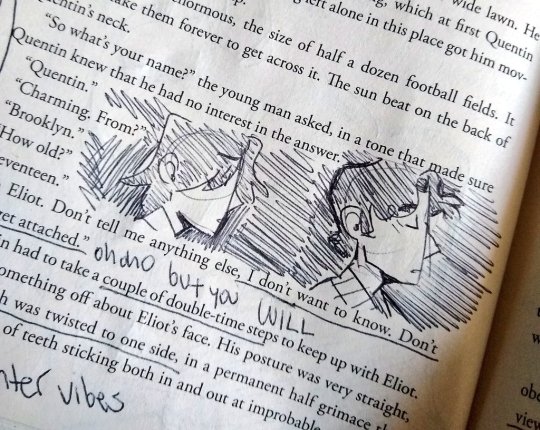 wide lawn. He
ng, which at first Quentin
left alone in this place got him mov-
normous, the size of half a dozen football fields. It
ake them forever to get across it. The sun beat on the back of
entin's neck.
"So what's your name?" the young man asked, in a tone that made sure
Quentin knew that he had no interest in the answer.
"Quentin."
"Charming. From?"
"Brooklyn."
"How old?"
eventeen."
Eliot. Don't tell me anything else, I don't want to know. Don't
et attached."
oh no but you WILL
n had to take a couple of double-time steps to keep up with Eliot.
omething off about Eliot's face. His posture was very straight,
h was twisted to one side, in a permanent half grimace th
of teeth sticking both in and out at improbable
nter vibes
obe
view